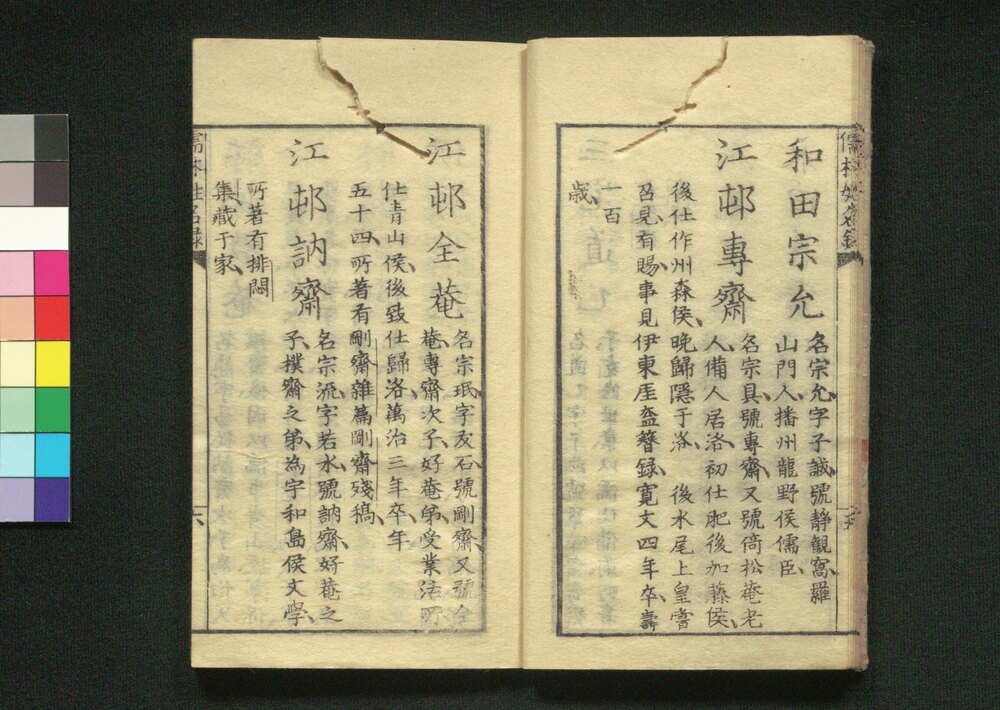 儒林姓名録
和田宗允
名宗允字子誠號静観窩羅
山門人播州龍野侯儒臣
江邨專齋
名宗具號專齋又號倚松菴老
人備人居洛初仕肥後加藤侯
後仕作州森侯晩歸隱于洛 後水尾上皇嘗
召見有賜事見伊東厓盍簪録寛文四年卒壽
一百
歳
江邨全菴
名宗珉字友石號剛齋又號全
菴專齋次子好菴弟受業活所
仕青山侯後致仕歸洛萬治三年卒年
五十四所著有剛齋雜篇剛齋殘稿
江邨訥齋
名宗流字若水號訥齋好菴之
子撲齋之弟為宇和島侯文學
所著有排悶
集藏于家
儒林姓名録
六